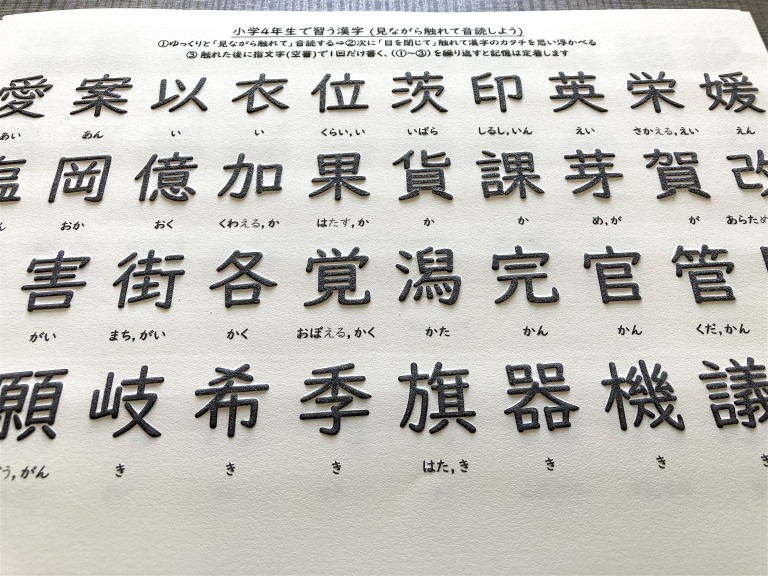 小学4年生で習う漢字 (見ながら触れて音読しよう)
①ゆっくりと「見ながら触れて」音読する⇒②次に「目を閉じて」触れて漢字のカタチを思い浮かべる
③ 触れた後に指文字(空書)で1回だけ書く、(①～③)を繰り返すと記憶は定着します
愛 案 以 衣 位 茨 印 英 栄 媛
あい あん い い くらい,い いばら しるし,いん えい さかえる,えい えん
塩 岡 億 加 果 貨 課 芽 賀 改
ん おか おく くわえる,か はたす,か か か め,が が あらため
害 街 各 覚 潟 完 官 管
がい まち,がい かく おぼえる,かく かた かん かん くだ,かん
願 岐 希 季 旗 器 機 議
う,がん き き き はた,き き き